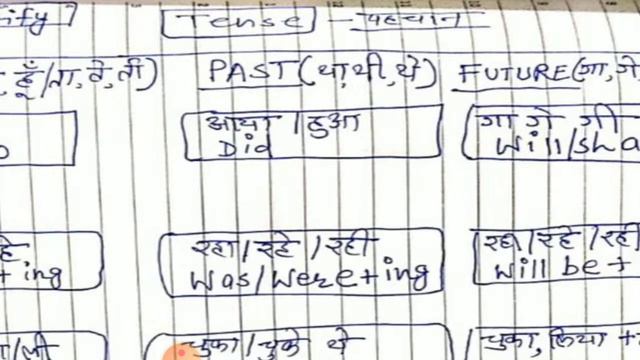 Tense - पहचान
हूँ/ता, ते, ती) PAST (था, थी, थे) FUTURE (गा, गे
आया / हुआ
Did
गा गे गी
will/sha
रहा/रहे/रही
was/were+ing
+ing
रहा/रहे/रही
will be+
चुका/चुके थे
चुका, लिया +